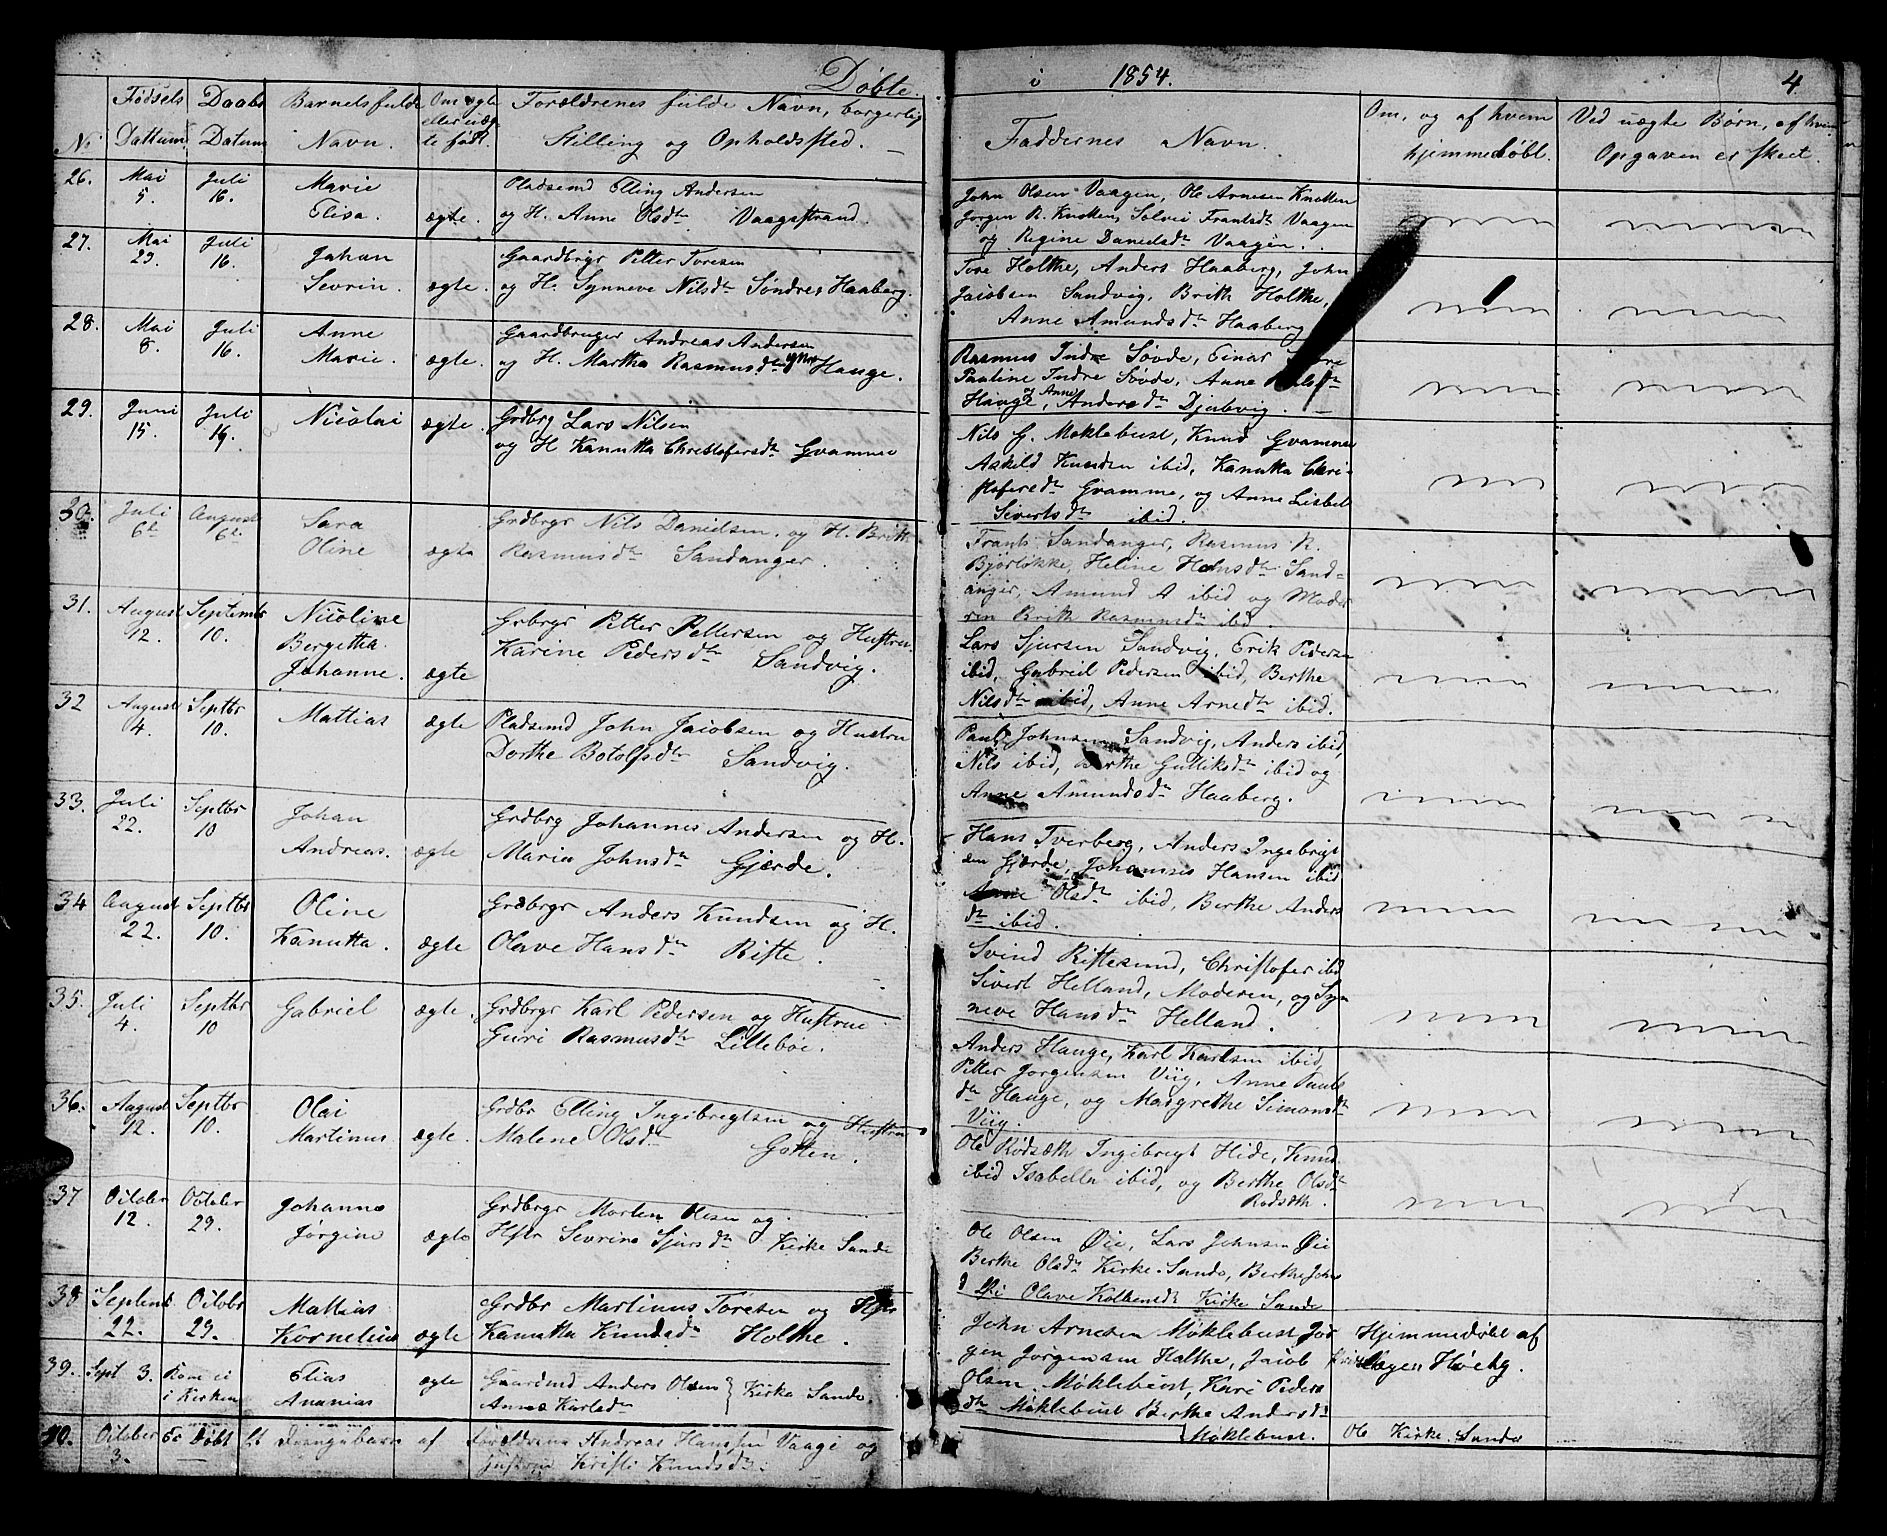 Døbte
i 1854. 4
No Fødsels Dattum Daabs Datum Barnets fulde Navn. Om ægte eller uægte født. Forældrenes fulde Navn, borgerlig Stilling og Opholdssted. Faddernes Navn. Om, og af hvem hjemmedøbt. Ved uægte Børn, af hvem Opgaven er skeet.
26. Mai 5. Juli 16. Marie Elisa. ægte. Pladsemd Elling Andersen
og H. Anne Olsdtr Vaagsstrand.
John Olsen Vaagen, Ole Arnesen Knotten
Jørgen R. Knotten, Solvei Frantsdtr Vaagen
og Regine Danielsdtr Vaagen.
27. Mai 29. Juli 16. Johan Sevrin. ægte. Gaardbrgr Petter Toresen
og H. Synneve Nilsdtr Søndre Haaberg.
Tore Holthe, Anders Haaberg, John
Jacobsen Sandvig, Brith Holthe,
Anne Amundsdtr Haaberg
28. Mai 8. Juli 16. Anne Marie. ægte. Gaardbruger Andreas Andersen
og H. Martha Rasmusdtr Hauge.
Rasmus Indre Søvde, Einar
Pauline Indre Søvde, Anne
Hauge, og Anne Andersdtr Djubvig.
29. Juni 15. Juli 16. Nicolai ægte. Grdbrg Lars Nilsen
og H Kanutta Christofersdtr Gvamme
Nils G. Moklebust, Knud Gvamme
Askild Knudsen ibid, Kanutta Chri-
stofersdtr Gvamme, og Anne Lisbet
Sivertsdtr ibid.
30. Juli 6te August 6te Sara Oline ægte Grdbrgr Nils Danielsen, og H. Brith
Rasmusdtr Sandanger.
Frants Sandanger, Rasmus R.
Bjørløkke, Heline Hansdtr Sand-
anger, Amund A ibid og Mode-
ren Brith Rasmusdtr ibid.
31. August 12. Septembr 10. Nicoline Bergitha Johanne. ægte Grbrgr Petter Pettersen og Hustru
Karine Pedersdtr Sandvig.
Lars Sjursen Sandvig, Erik Pedersen
ibid, Gabriel Pedersen ibid, Berthe
Nilsdtr ibid, Anne Arnedtr ibid.
32 August 4. Septbr 10. Mattias ægte Pladsemd John Jacobsen og Hustru
Dorthe Botolfsdtr Sandvig.
Paul Johnsen Sandvig, Anders ibid,
Nils ibid, Berthe Gulliksdtr ibid og
Anne Amundsdtr Haaberg.
33. Juli 22. Septbr 10 Johan Andreas. ægte Grdbrg Johannes Andersen og H.
Maria Johnsdtr Gjerde.
Hans Tverberg, Anders Ingebrigt
sen Gjerde, Johannes Hansen ibid
Anne Olsdtr ibid, Berthe Anders
dtr ibid.
34 August 22. Septbr 10. Oline Kanutta. ægte Grdbrgr Anders Knudsen og H.
Olave Hansdtr Riste.
Svind Ristesund, Christofer ibd
Sivert Helland, Moderen, og Syn
neve Hansdtr Helland.
35. Juli 4. Septbr 10 Gabriel ægte. Grdbrgr Karl Pedersen og Hustrue
Guri Rasmusdtr Lillebøe.
Anders Hauge, Karl Karlsen ibid,
Petter Jørgensen Viig, Anne Pauls
dtr Hauge, og Margrethe Simonsdtr
Viig.
36. August 12. Septbr 10. Olai Martinus ægte. Grdbr Elling Ingibregtsen og Hustru
Malene Olsdtr Gotten.
Ole Rødsæth Ingibregt Hide, Knud
ibid Isabella ibid, og Berthe Olsdtr
Rødsæth.
37 October 12. October 29. Johanne Jørgine ægte Grdbrgr Morten Olsen og
Hstr Sevrine Sjursdtr Kirke Sande
Ole Olsen Øie, Lars Johnsen Øie
Berthe Olsdtr Kirke-Sande, Berthe Johs
d Øi Olave Kolbensdtr Kirke Sande
38 Septemb 22. Octobr 29. Mattias Kornelius ægte Grdbr Martinus Toresen og Hstr
Kanutta Knudsdtr Holthe.
John Arnesen Møklebust, Jør
gen Jørgensen Holthe, Jacob
Olsen Møklebust, Kari Peders
dtr Møklebust Berthe Andersdtr
Møklebust.
Hjemmedøbt af
Lægen Høeg.
39. Sept 3. Kom ei i Kirken Elias Ananias ægte Gaardmd Anders Olsen
Anne Karlsdtr } Kirke Sande.
Ole Kirke-Sande
40. October 3. Ei Døbt Et Drengebarn af Forældrene Andreas Hanssen Vaage og
Hustrue Kristi Knudsdtr.